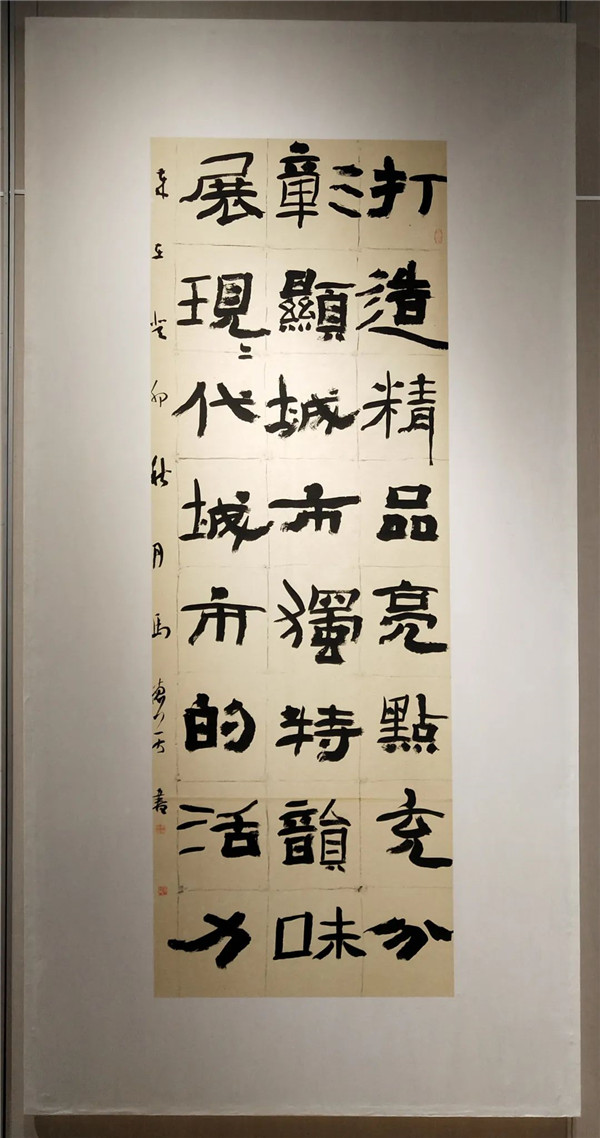 打造精品亮點充分
彰顯城市獨特韻味
展現〻代城市的活力
歲在癸卯秋月馬書